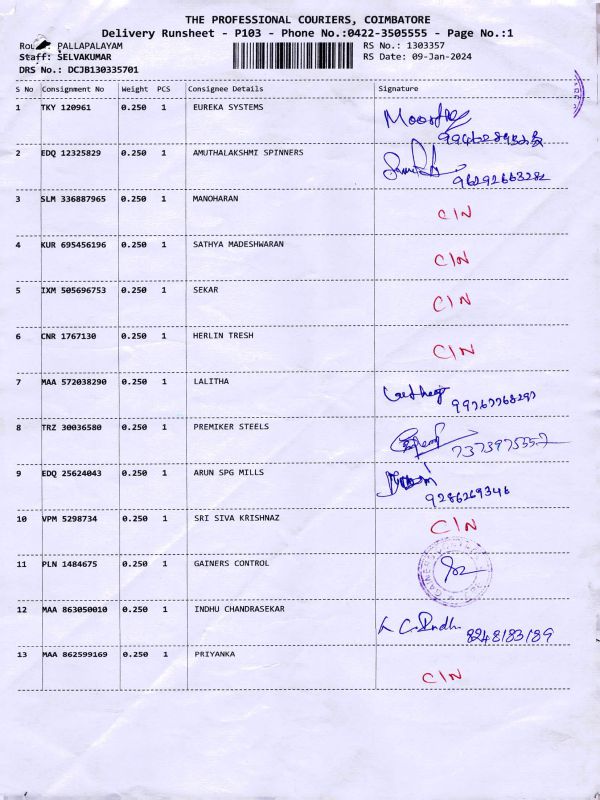 THE PROFESSIONAL COURIERS, COIMBATORE
Delivery Runsheet - P103 - Phone No.:0422-3505555 - Page No.:1
PALLAPALAYAM RS No.: 1303357
Staff: SELVAKUMAR RS Date: 09-Jan-2024
DRS No.: DCJB130335701
S No Consignment No Weight PCS Consignee Details Signature
1 TKY 120961 0.250 1 EUREKA SYSTEMS
2 EDQ 12325829 0.250 1 AMUTHALAKSHMI SPINNERS
96292663282
3 SLM 336887965 0.250 1 MANOHARAN C/N
4 KUR 695456196 0.250 1 SATHYA MADESHWARAN C/N
5 IXM 505696753 0.250 1 SEKAR C/N
6 CNR 1767130 0.250 1 HERLIN TRESH C/N
7 MAA 572038290 0.250 1 LALITHA
8 TRZ 30036580 0.250 1 PREMIKER STEELS
7373975557
9 EDQ 25624043 0.250 1 ARUN SPG MILLS
9286269346
10 VPM 5298734 0.250 1 SRI SIVA KRISHNAZ C/N
11 PLN 1484675 0.250 1 GAINERS CONTROL
12 MAA 863050010 0.250 1 INDHU CHANDRASEKAR
8248183189
13 MAA 862599169 0.250 1 PRIYANKA C/N